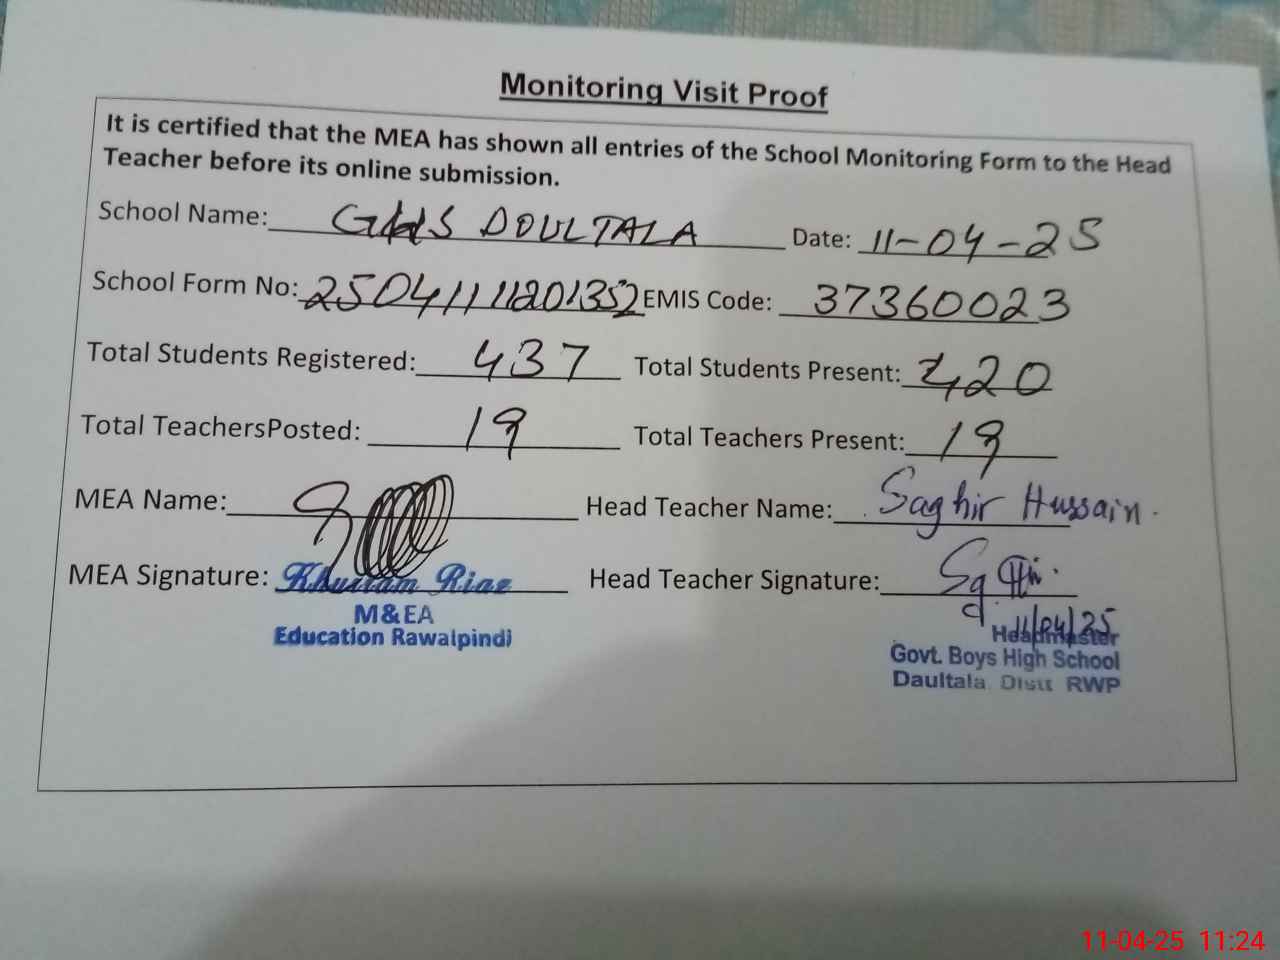 Monitoring Visit Proof
It is certified that the MEA has shown all entries of the School Monitoring Form to the Head
Teacher before its online submission.
School Name: GHS DOULTALA Date: 11-04-25
School Form No: EMIS Code: 37360023
Total Students Registered: 437 Total Students Present: 420
Total TeachersPosted: 19 Total Teachers Present: 19
MEA Name: Head Teacher Name: Saghir Hussain.
MEA Signature: Khurram Riaz Head Teacher Signature:
M&EA
Education Rawalpindi
11/04/25
Headmaster
Govt. Boys High School
Daultala Distt RWP
11-04-25 11:24